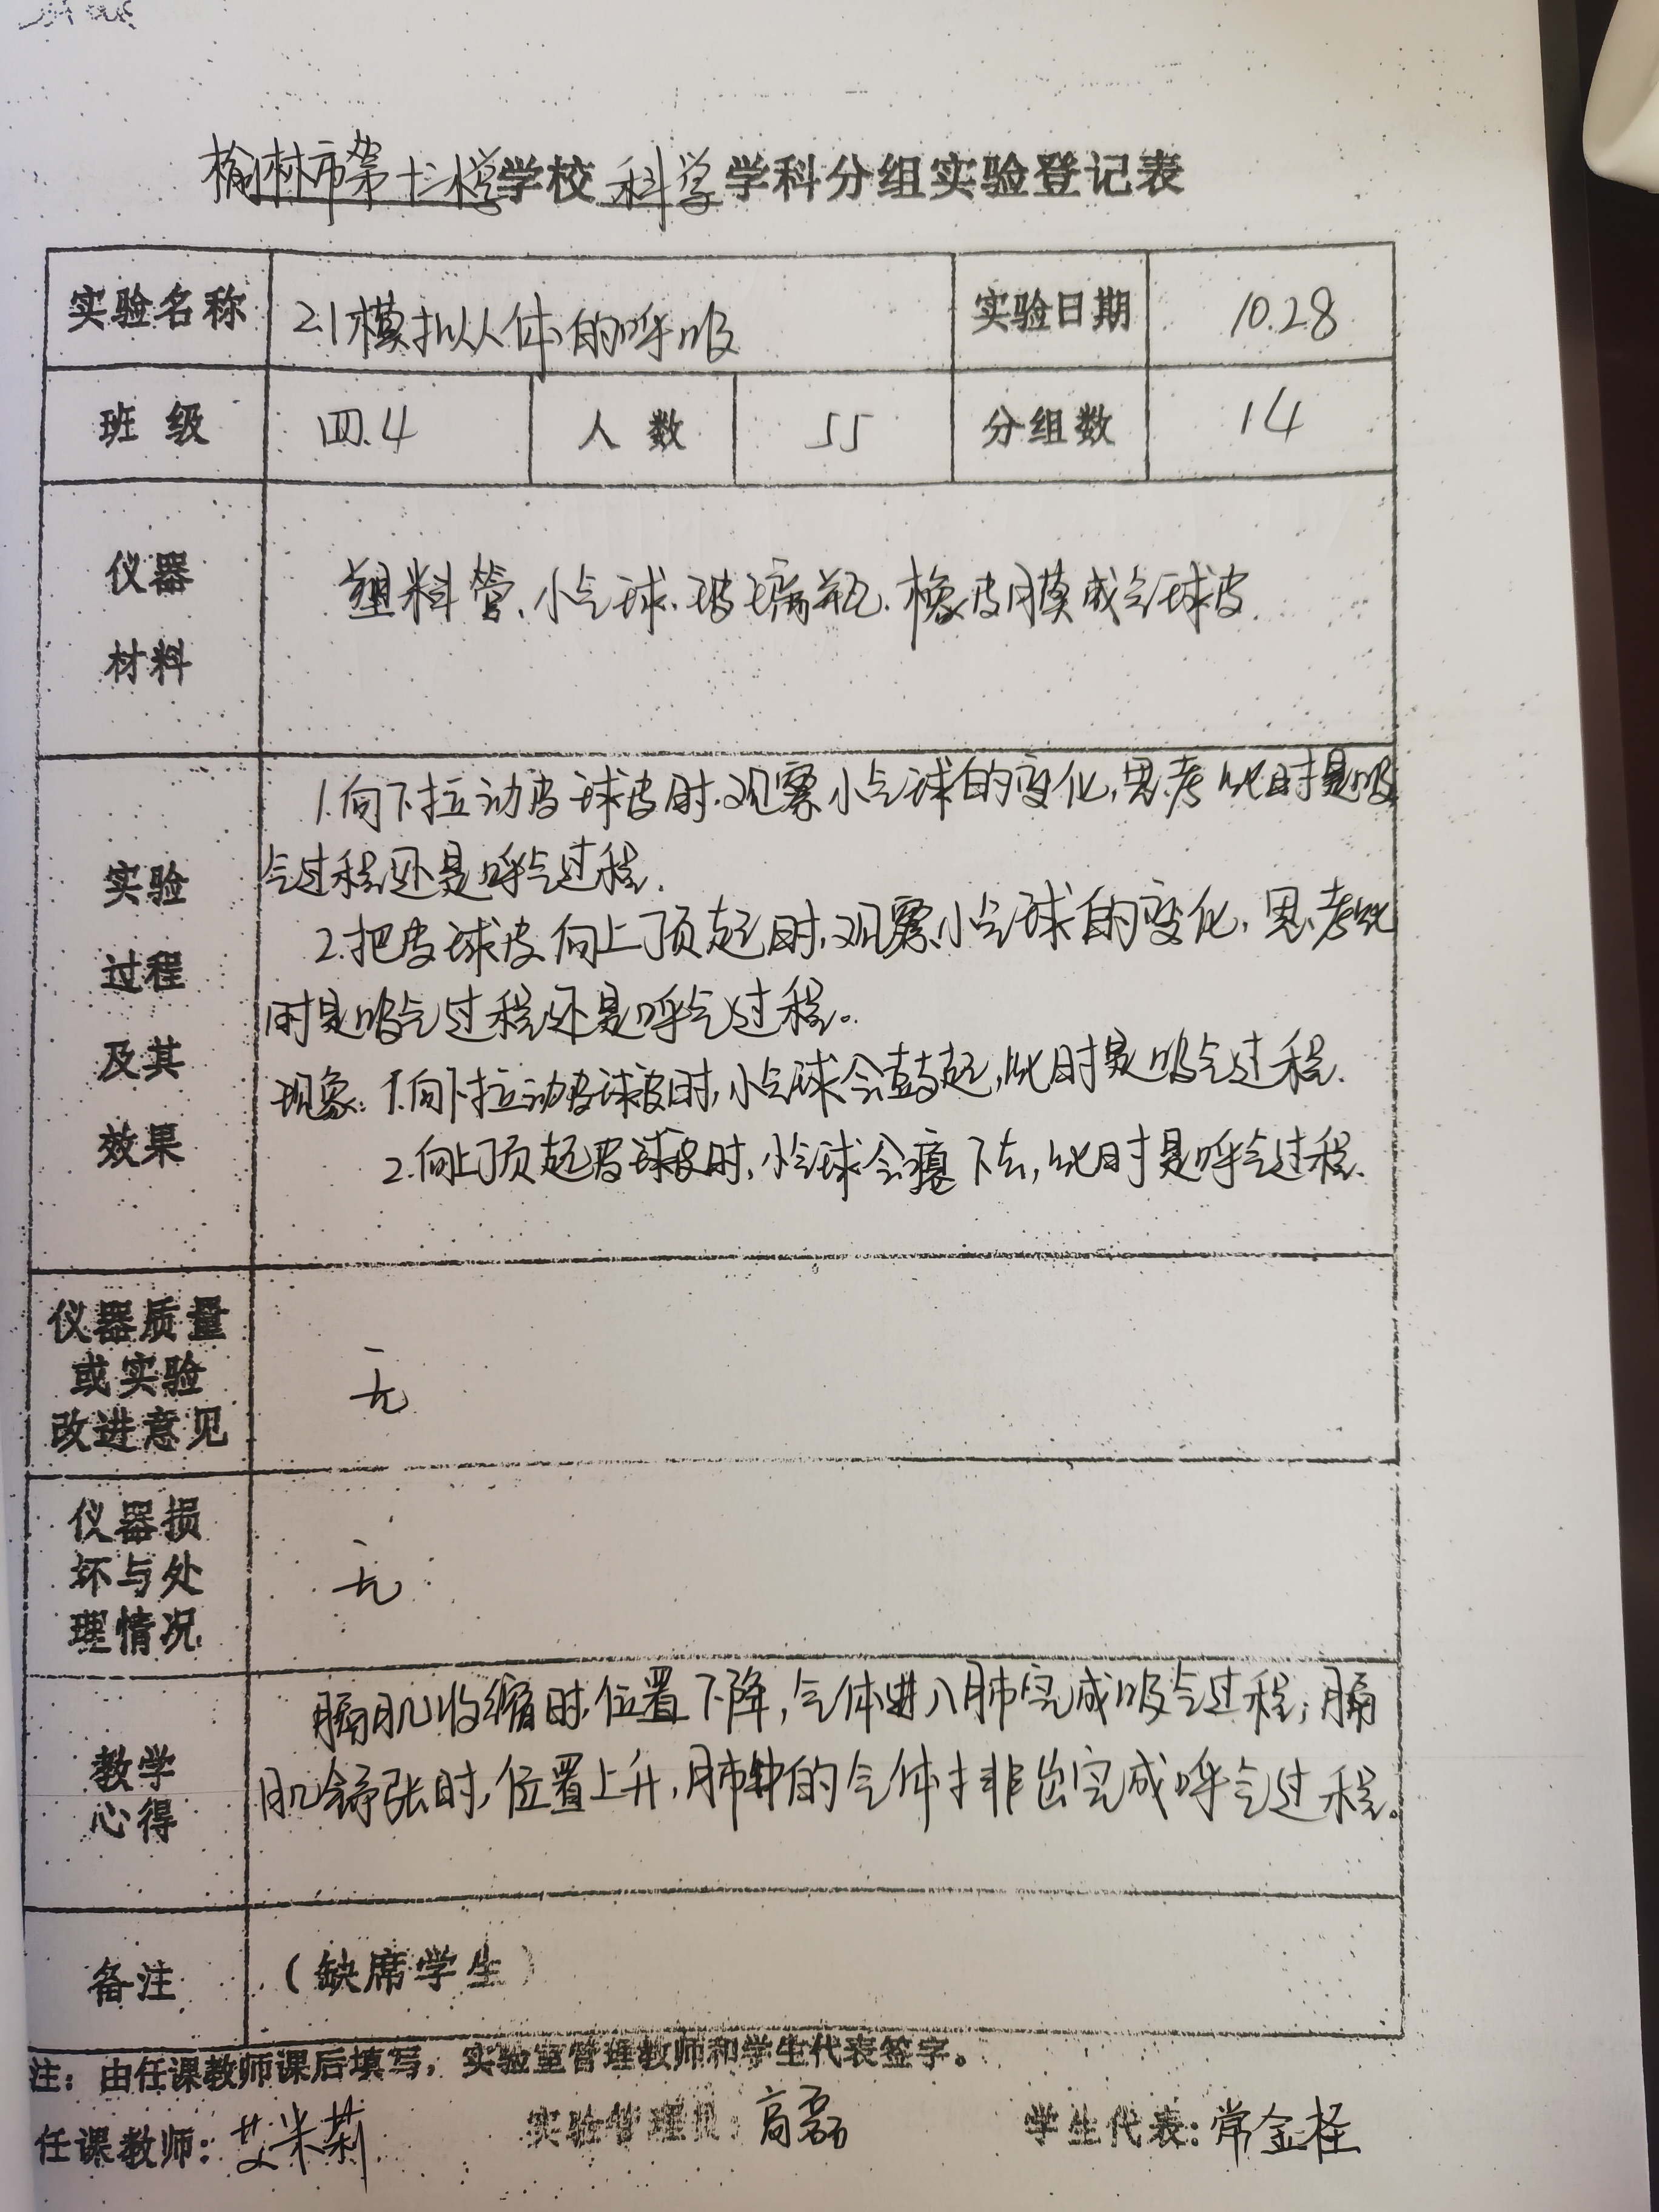 榆林市第十二小学学校 科学 学科分组实验登记表
实验名称 2.1模拟人体的呼吸 实验日期 10.28
班级 四.4 人数 55 分组数 14
仪器
材料
塑料管、小气球、玻璃瓶、橡皮膜或气球皮
实验
过程
及其
效果
1.向下拉动皮球皮时,观察小气球的变化,思考此时是吸
气过程还是呼气过程.
2.把皮球皮向上顶起时,观察小气球的变化,思考此
时是吸气过程还是呼气过程。
现象:1.向下拉动皮球皮时,小气球会鼓起,此时是吸气过程.
2.向上顶起皮球皮时,小气球会瘪下去,此时是呼气过程.
仪器质量
或实验
改进意见
无
仪器损
坏与处
理情况
无
教学
心得
膈肌收缩时,位置下降,气体进入肺完成吸气过程;膈
肌舒张时,位置上升,肺的气体排出完成呼气过程。
备注 (缺席学生)
注:由任课教师课后填写,实验室管理教师和学生代表签字。
任课教师:艾米莉 实验管理员:高磊 学生代表:常金栓